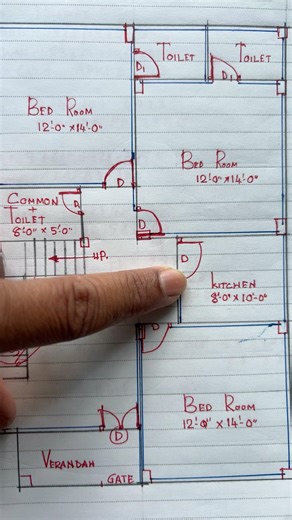 TOILET
TOILET
D1
D1
BED ROOM
12'-0" x 14'-0"
BED ROOM
12'-0" x 14'-0"
D
COMMON
+
TOILET
8'-0" x 5'-0"
D
UP.
D
KITCHEN
8'-0" x 10'-0"
D
BED ROOM
12'-0" x 14'-0"
D
VERANDAH
GATE